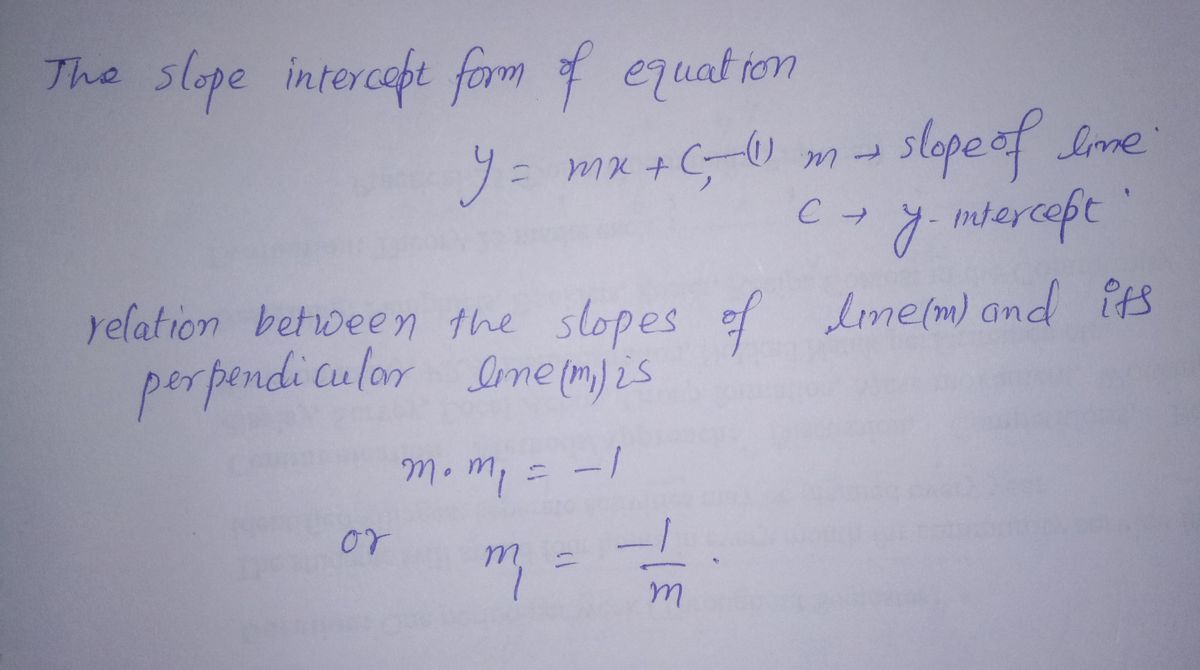 The slope intercept form of equation
y = mx + C, —(1) m → slope of line
C → y-intercept
relation between the slopes of line(m) and its
perpendicular line(m₁) is
m . m₁ = -1
or m₁ = -1/m .